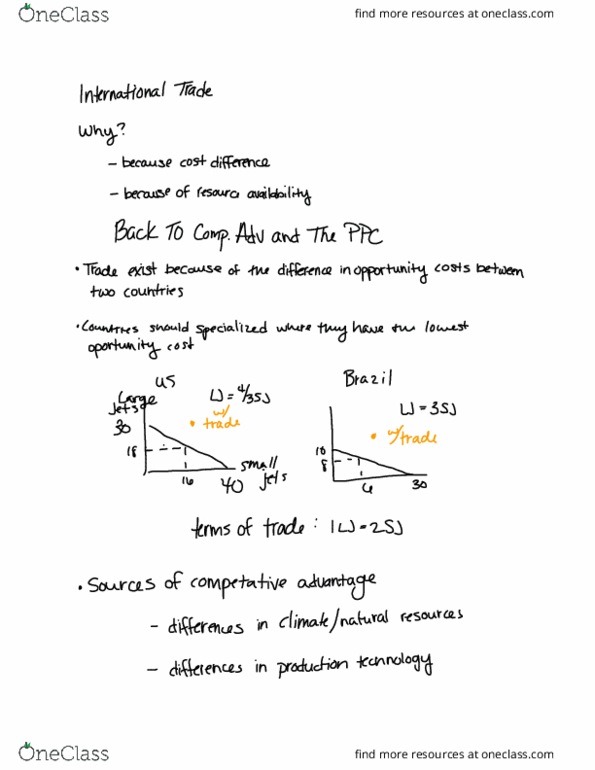 OneClass
find more resources at oneclass.com
International Trade
Why?
- because cost difference
- because of resource availability
Back To Comp. Adv and The PPC
• Trade exist because of the difference in opportunity costs between
two countries
• Countries should specialized where they have the lowest
oportunity cost
US
Large
Jets
30
18
16
40
small
jets
LJ = 4/3SJ
w/
trade
Brazil
LJ = 3SJ
w/trade
10
8
6
30
terms of trade : 1LJ = 2SJ
• Sources of competative advantage
- differences in climate/natural resources
- differences in production technology
OneClass
find more resources at oneclass.com